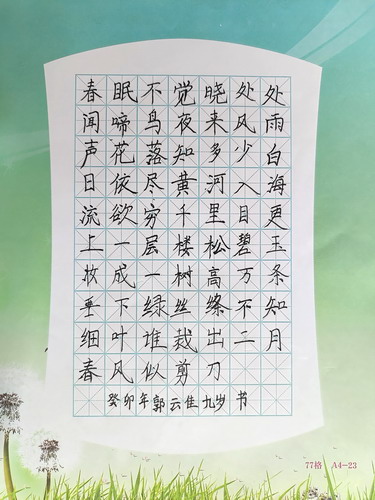 春眠不觉晓处处
闻啼鸟夜来风雨
声花落知多少白
日依尽黄河入海
流欲穷千里目更
上一层楼松碧玉
妆成一树高万条
垂下绿丝绦不知
细叶谁裁出二月
春风似剪刀
癸卯年郭云佳九岁 书
77格 A4-23